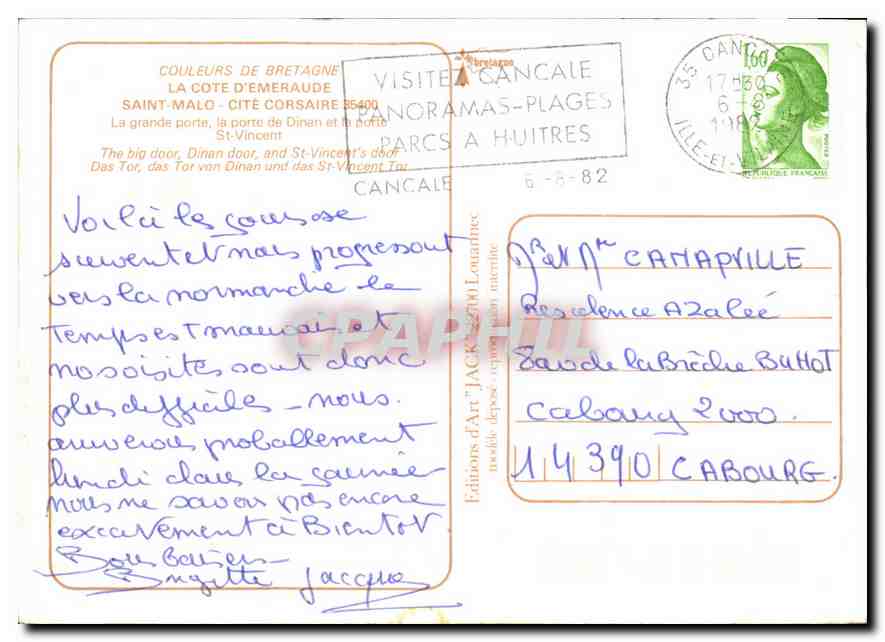 COULEURS DE BRETAGNE
LA COTE D'EMERAUDE
SAINT-MALO - CITÉ CORSAIRE 35400
La grande porte, la porte de Dinan et la porte
St-Vincent
The big door, Dinan door, and St-Vincent's door
Das Tor, das Tor van Dinan und das St-Vincent Tor
bretagne
VISITEZ CANCALE
PANORAMAS-PLAGES
PARCS A HUITRES
CANCALE 6-8-82
35 CANCALE
17H30
6-8
1982
ILLE-ET-VILAINE
1,60
POSTES
REPUBLIQUE FRANCAISE
Voilà les jours se
suivent et nous progressont
vers la normandie le
Temps est mauvais et
nos visites sont donc
plus difficiles - nous
arriverons probablement
lundi dans la journée
nous ne savons pas encore
exactement à Bientot
Bons Baisers
Brigitte Jacques
Editions d'Art "JACK" 22700 Louannec
modèle déposé - reproduction interdite
Mr et Mme CANAPVILLE
Residence Azalée
de la Brèche BUHOT
Cabourg 2000.
14390 CABOURG
CPAPHIL